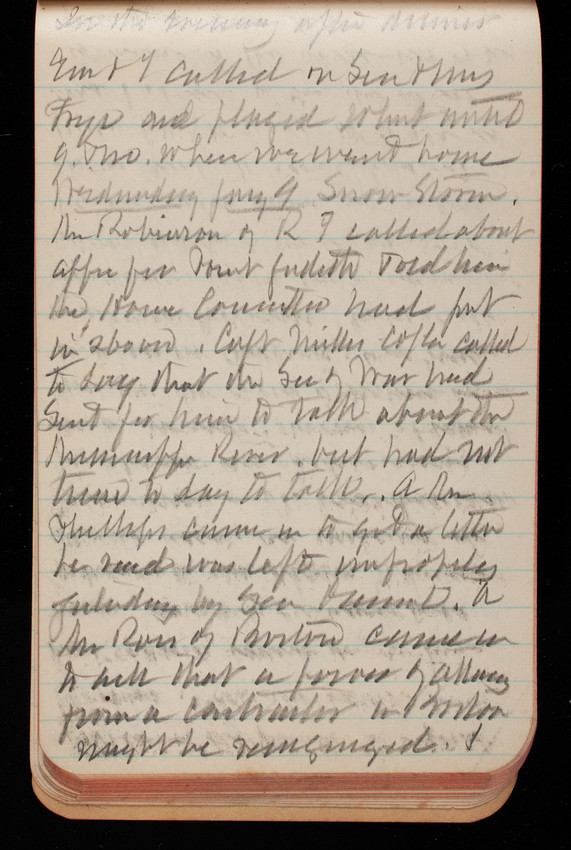 In the evening after dinner
Em & I called on Gen & Mrs
Frye and played whist until
9. when we went home
Wednesday Jany 9 Snow Storm.
Mr Robinson of R I called about
appr for Point Judith Told him
the House Committee had put
in above. Capt Miller called
to say that the Sec of War had
sent for him to talk about the
Mississippi River. but had not
time to day to talk. A Mr
Phillips came in to get a letter
he said was left improperly
by Gen. A
Mr Ross of Boston came in
to ask that a power of attorney
from a contractor in Boston
might be recognized. I